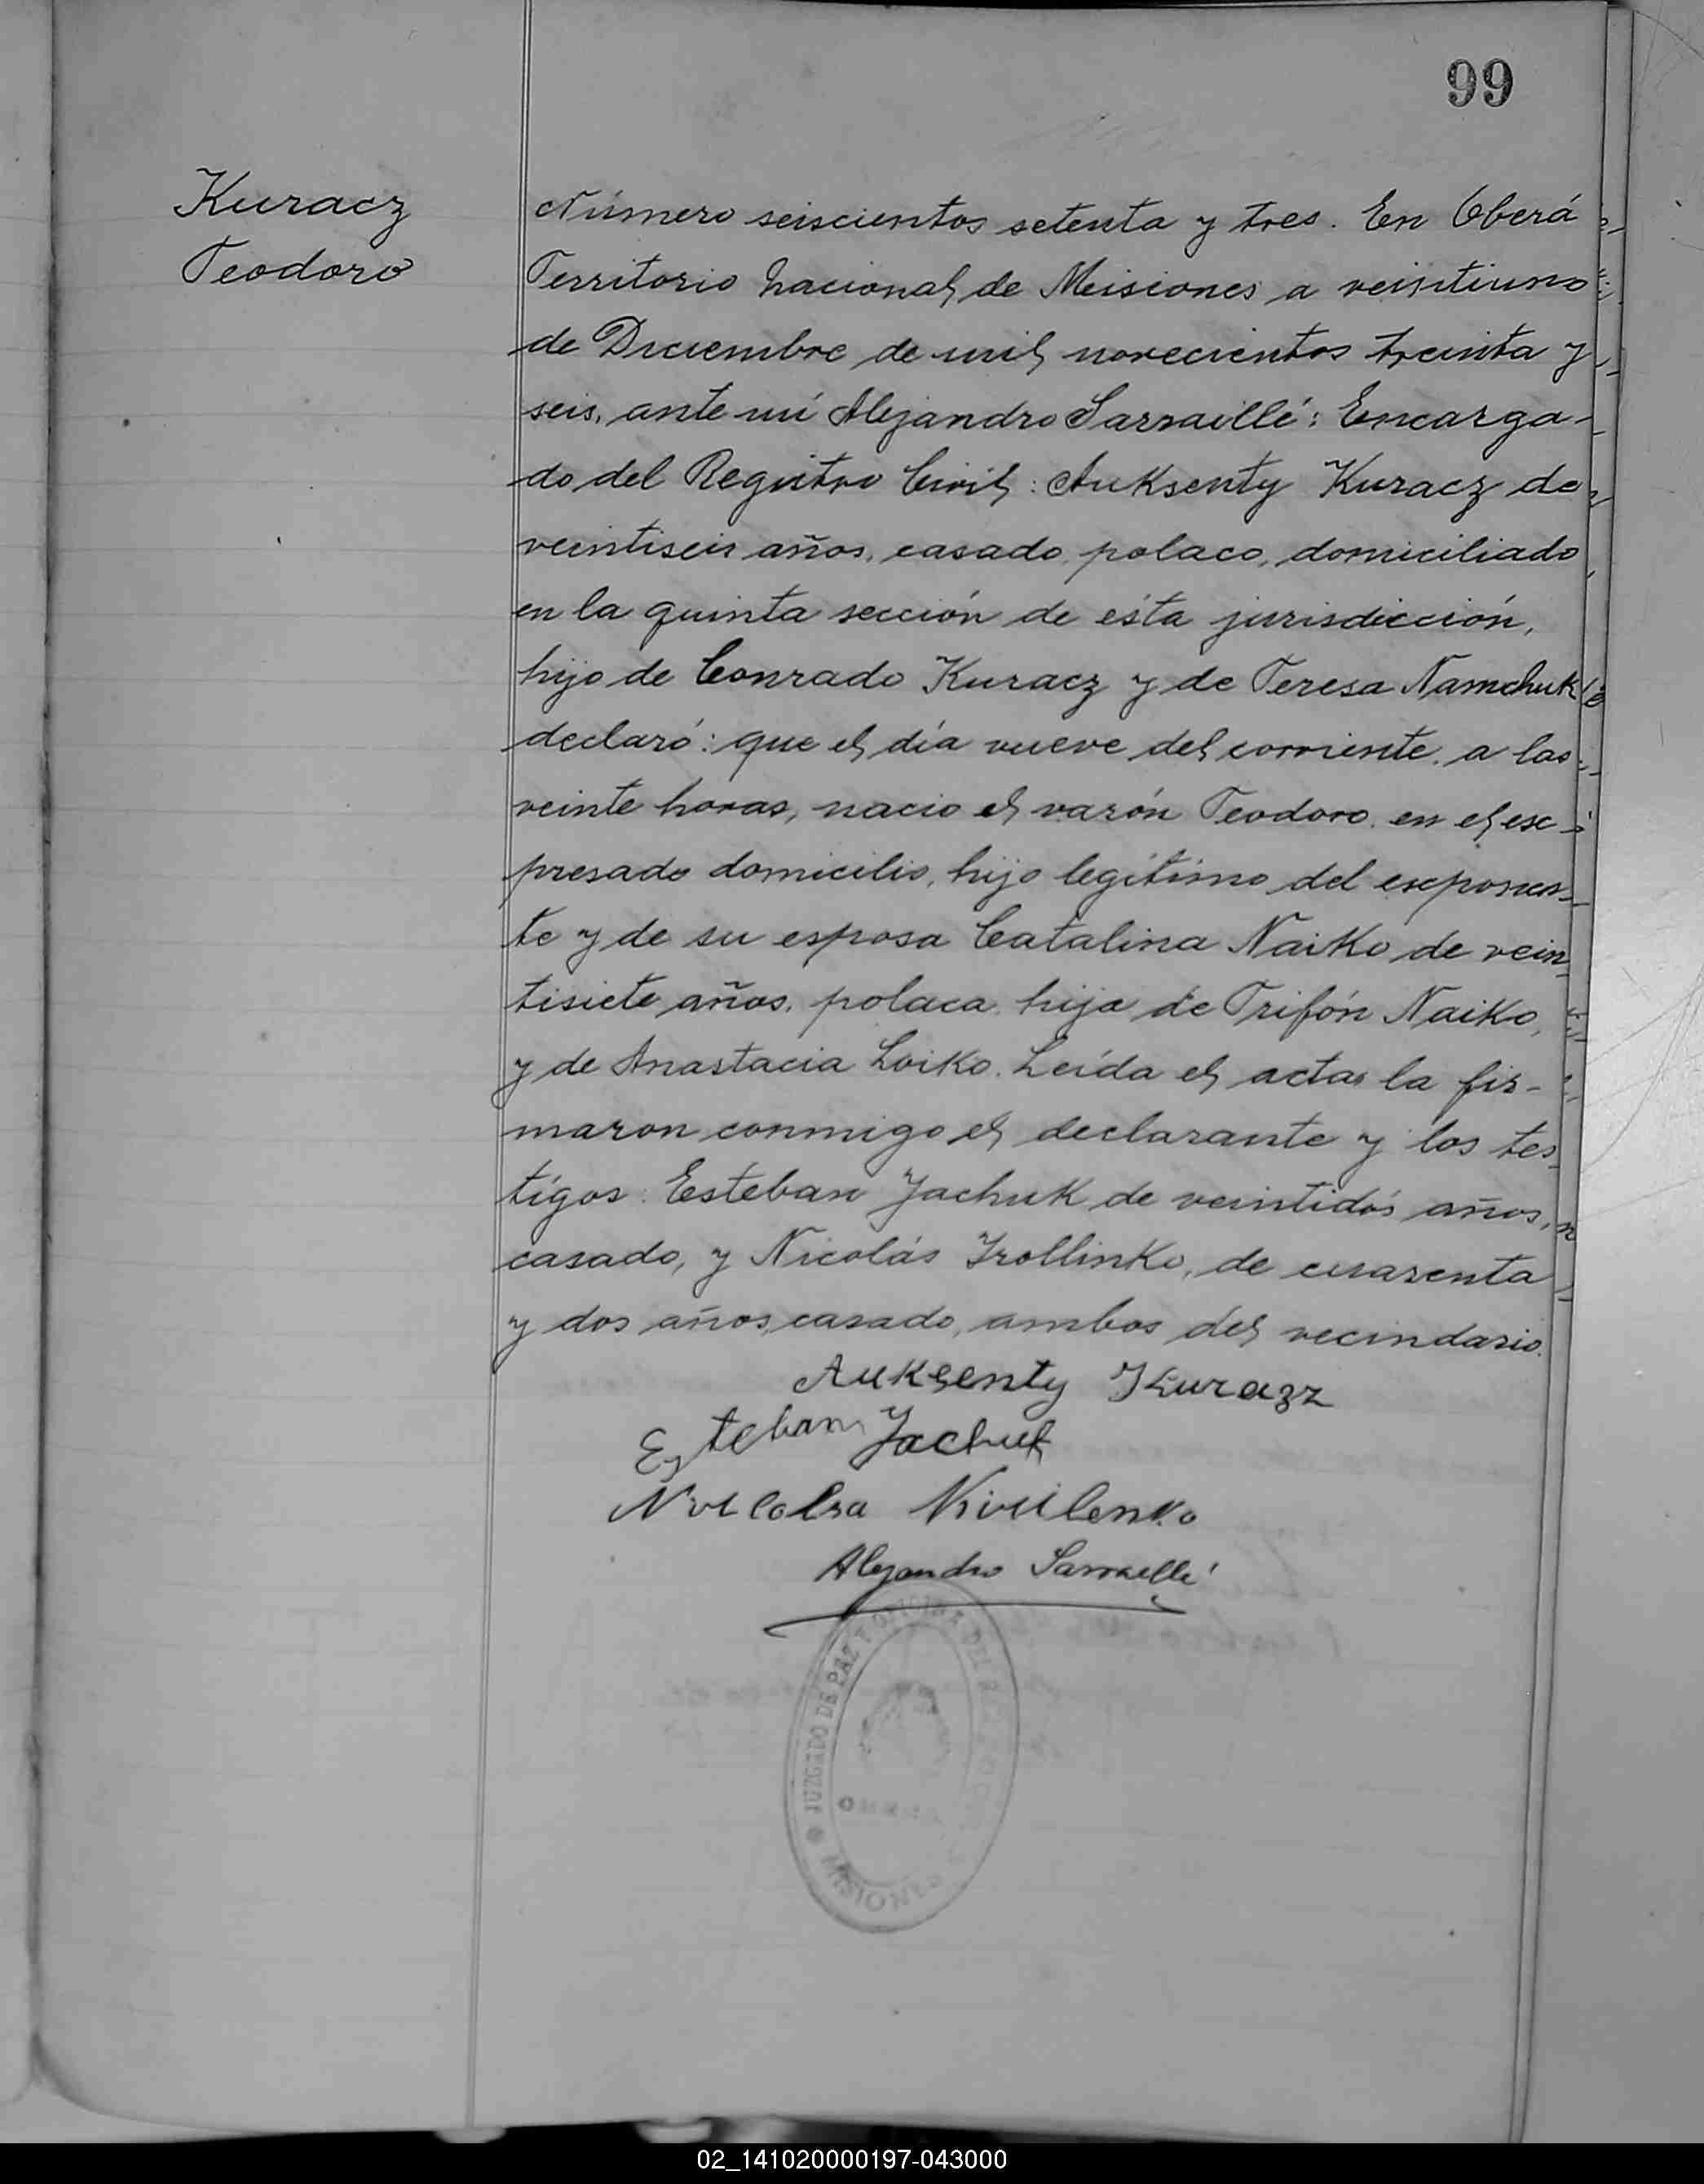 99
Kuracz
Teodoro
Número seiscientos setenta y tres. En Oberá
Territorio Nacional de Meisiones a veintiuno
de Diciembre de mil novecientos treinta y
seis, ante mí Alejandro Sarraillé: Encarga-
do del Registro Civil: Auksenty Kuracz de
veintiseis años, casado, polaco, domiciliado
en la quinta sección de ésta jurisdicción,
hijo de Conrado Kuracz y de Teresa Namchuk
declaró: que el día nueve del corriente, a las
veinte horas, nacio el varón Teodoro, en el ex-
presado domicilio, hijo legítimo del exponen-
te y de su esposa Catalina Naiko de vein
tisiete años, polaca, hija de Trifón Naiko,
y de Anastacia Loiko. Leída el acta, la fir-
maron conmigo el declarante y los tes-
tigos: Esteban Jachuk de veintidós años,
casado, y Nicolás Irollinko, de cuarenta
y dos años, casado, ambos del vecindario.
Auksenty Kurazz
Esteban Jachuk
Alejandro Sarraillé
JUZGADO DE PAZ Y OFICINA DEL
MISIONES
02_141020000197-043000